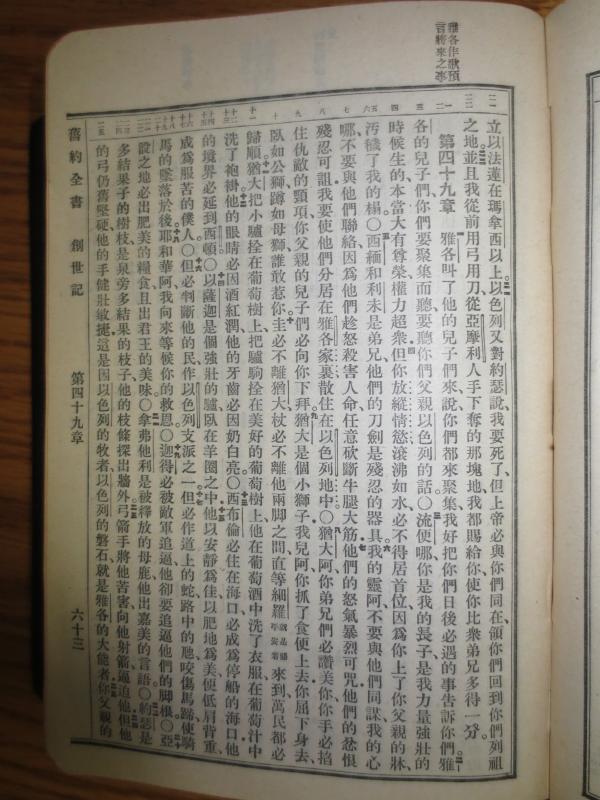 雅各作歌預
言將來之事
立以法蓮在瑪拿西以上以色列又對約瑟說我要死了但上帝必與你們同在領你們回到你們列祖
之地並且我從前用弓用刀從亞摩利人手下奪的那塊地我都賜給你使你比衆弟兄多得一分
第四十九章 雅各叫了他的兒子們來說你們都來聚集我好把你們日後必遇的事告訴你們雅
各的兒子們你們要聚集而聽要聽你們父親以色列的話〇流便哪你是我的長子是我力量強壯的
時候生的本當大有尊榮權力超衆但你放縱情慾滾沸如水必不得居首位因爲你上了你父親的牀
汚穢了我的榻〇西緬和利未是弟兄他們的刀劍是殘忍的器具我的靈阿不要與他們同謀我的心
哪不要與他們聯絡因爲他們趁怒殺害人命任意砍斷牛腿大筋他們的怒氣暴烈可咒他們的忿恨
殘忍可詛我要使他們分居在雅各家裏散住在以色列地中〇猶大阿你弟兄們必讚美你你手必掐
住仇敵的頸項你父親的兒子們必向你下拜猶大是個小獅子我兒阿你抓了食便上去你屈下身去
臥如公獅蹲如母獅誰敢惹你圭必不離猶大杖必不離他兩脚之間直等細羅來到萬民都必
歸順猶大把小驢拴在葡萄樹上把驢駒拴在美好的葡萄樹上他在葡萄酒中洗了衣服在葡萄汁中
洗了袍褂他的眼睛必因酒紅潤他的牙齒必因奶白亮〇西布倫必住在海口必成爲停船的海口他
的境界必延到西頓〇以薩迦是個強壯的驢臥在羊圈之中他以安靜爲佳以肥地爲美便低肩背重
成爲服苦的僕人〇但必判斷他的民作以色列支派之一但必作道上的蛇路中的虺咬傷馬蹄使騎
馬的墜落於後耶和華阿我向來等候你的救恩〇迦得必被敵軍追逼他卻要追逼他們的脚根〇亞
設之地必出肥美的糧食且出君王的美味〇拿弗他利是被釋放的母鹿他出嘉美的言語〇約瑟是
多結果子的樹枝是泉旁多結果的枝子他的枝條探出牆外弓箭手將他苦害向他射箭逼迫他但他
的弓仍舊堅硬他的手健壯敏捷這是因以色列的牧者以色列的磐石就是雅各的大能者你父親的
舊約全書 創世記 第四十九章 六十三